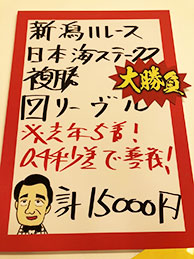 新潟11レース
日本海ステークス
複勝
大勝負
四リーヴル
※去年5着!
0.4秒差で善戦!
計15000円